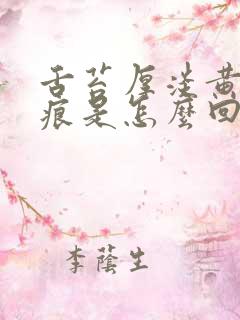 舌苔厚淡黄
痕是怎麼回
李蔭生